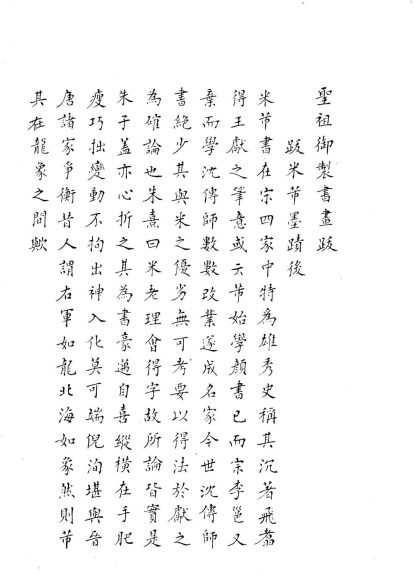 聖祖御製書畫跋
跋米芾墨蹟後
米芾書在宗四家中特為雄秀史稱其沉著飛翥
得王獻之筆意或云芾始學顏書已而宗李邕又
棄而學沈傳師數數改業遂成名家今世沈傳師
書絕少其與米之優劣無可考要以得法於獻之
為確論也朱熹曰米老理會得字故所論皆實是
朱子蓋亦心折之其為書豪邁自喜縱橫在手肥
瘦巧拙變動不拘出神入化莫可端倪洵堪與晉
唐諸家爭衡昔人謂右軍如龍北海如象然則芾
其在龍象之間歟